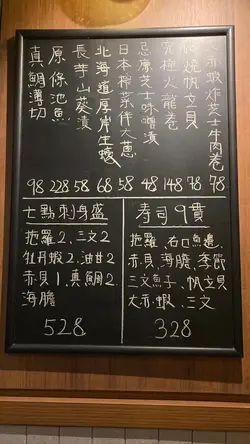 赤蝦炸芝士牛肉卷
燒帆立貝
究極火龍卷
忌廉芝士味噌漬
日本菜伴大蔥
北海道厚岸生蠔
長芋山葵漬
原條池魚
真鯛薄切
98 228 58 68 58 48 148 78 78
七點刺身盛
拖羅2、三文2
牡丹蝦2、油甘2
赤貝1、真鯛2
海膽
528
寿司9貫
拖羅、右口魚邊、
赤貝、海膽、季節
三文魚子、帆立貝
大赤蝦、三文
328